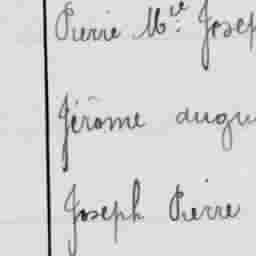 Pierre Mce Josep
Jérôme augu
Joseph Pierre